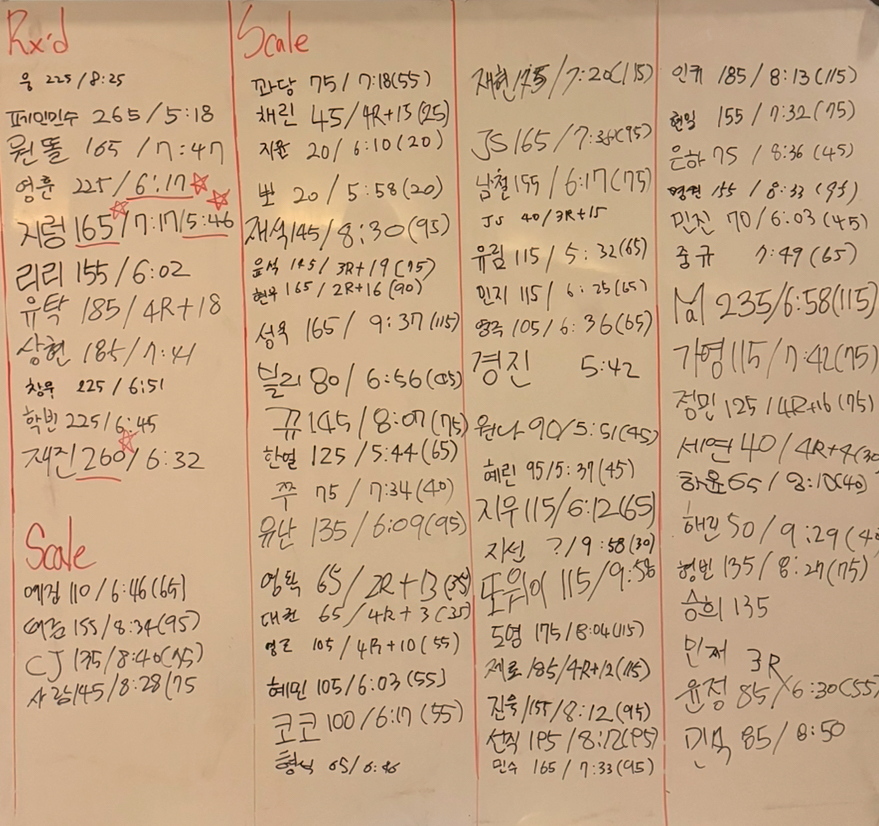 Rx'd
웅 225 / 8:25
프기인민수 265 / 5:18
원똘 165 / 7:47
영훈 225 / 6:17 ☆
지렁 165☆ / 7:17 / 5:46 ☆
리리 155 / 6:02
유탁 185 / 4R+18
상현 185 / 7:41
창우 225 / 6:51
학빈 225 / 6:45
재진 260☆ / 6:32
Scale
예림 110 / 6:46 (65)
155 / 8:34 (95)
CJ 135 / 8:40
사랑 145 / 8:28 (75
Scale
파당 75 / 7:18 (55)
채린 45 / 4R+13 (25)
지윤 20 / 6:10 (20)
뽀 20 / 5:58 (20)
재석 145 / 8:30 (95)
윤석 145 / 3R+19 (75)
현우 165 / 2R+16 (90)
성욱 165 / 9:37 (115)
블리 80 / 6:56
뀨 145 / 8:07 (75)
한열 125 / 5:44 (65)
쭈 75 / 7:34 (40)
유난 135 / 6:09 (95)
영환 65 / 2R+13 (35)
대권 65 / 4R+3 (35)
영조 105 / 4R+10 (55)
혜민 105 / 6:03 (55)
코코 100 / 6:17 (55)
형식 65 / 6:46
재현 175 / 7:20 (115)
JS 165 / 7:38 (95)
남철 155 / 6:17 (75)
JS 40 / 3R+15
유림 115 / 5:32 (65)
민지 115 / 6:25 (65)
영국 105 / 6:36 (65)
경진 5:42
원나 90 / 5:51 (45)
혜린 95 / 5:37 (45)
지우 115 / 6:12 (65)
지선 ? / 9:58 (30)
또위이 115 / 9:58
도영 175 / 8:04 (115)
제로 185 / 4R+12 (115)
진욱 155 / 8:12 (95)
선직 195 / 8:12 (95)
민수 165 / 7:33 (95)
인규 185 / 8:13 (115)
현일 155 / 7:32 (75)
은하 75 / 8:36 (45)
명현 155 / 8:33 (95)
민진 70 / 6:03 (45)
중규 7:49 (65)
Mal 235 / 6:58 (115)
가영 115 / 7:42 (75)
정민 125 / 4R+16 (75)
세연 40 / 4R+4 (30
하윤 65 / 8:10 (40)
해린 50 / 9:29 (40
형빈 135 / 8:27 (75)
승희 135
민재 3R
윤정 85 / 6:30 (55)
민욱 85 / 8:50